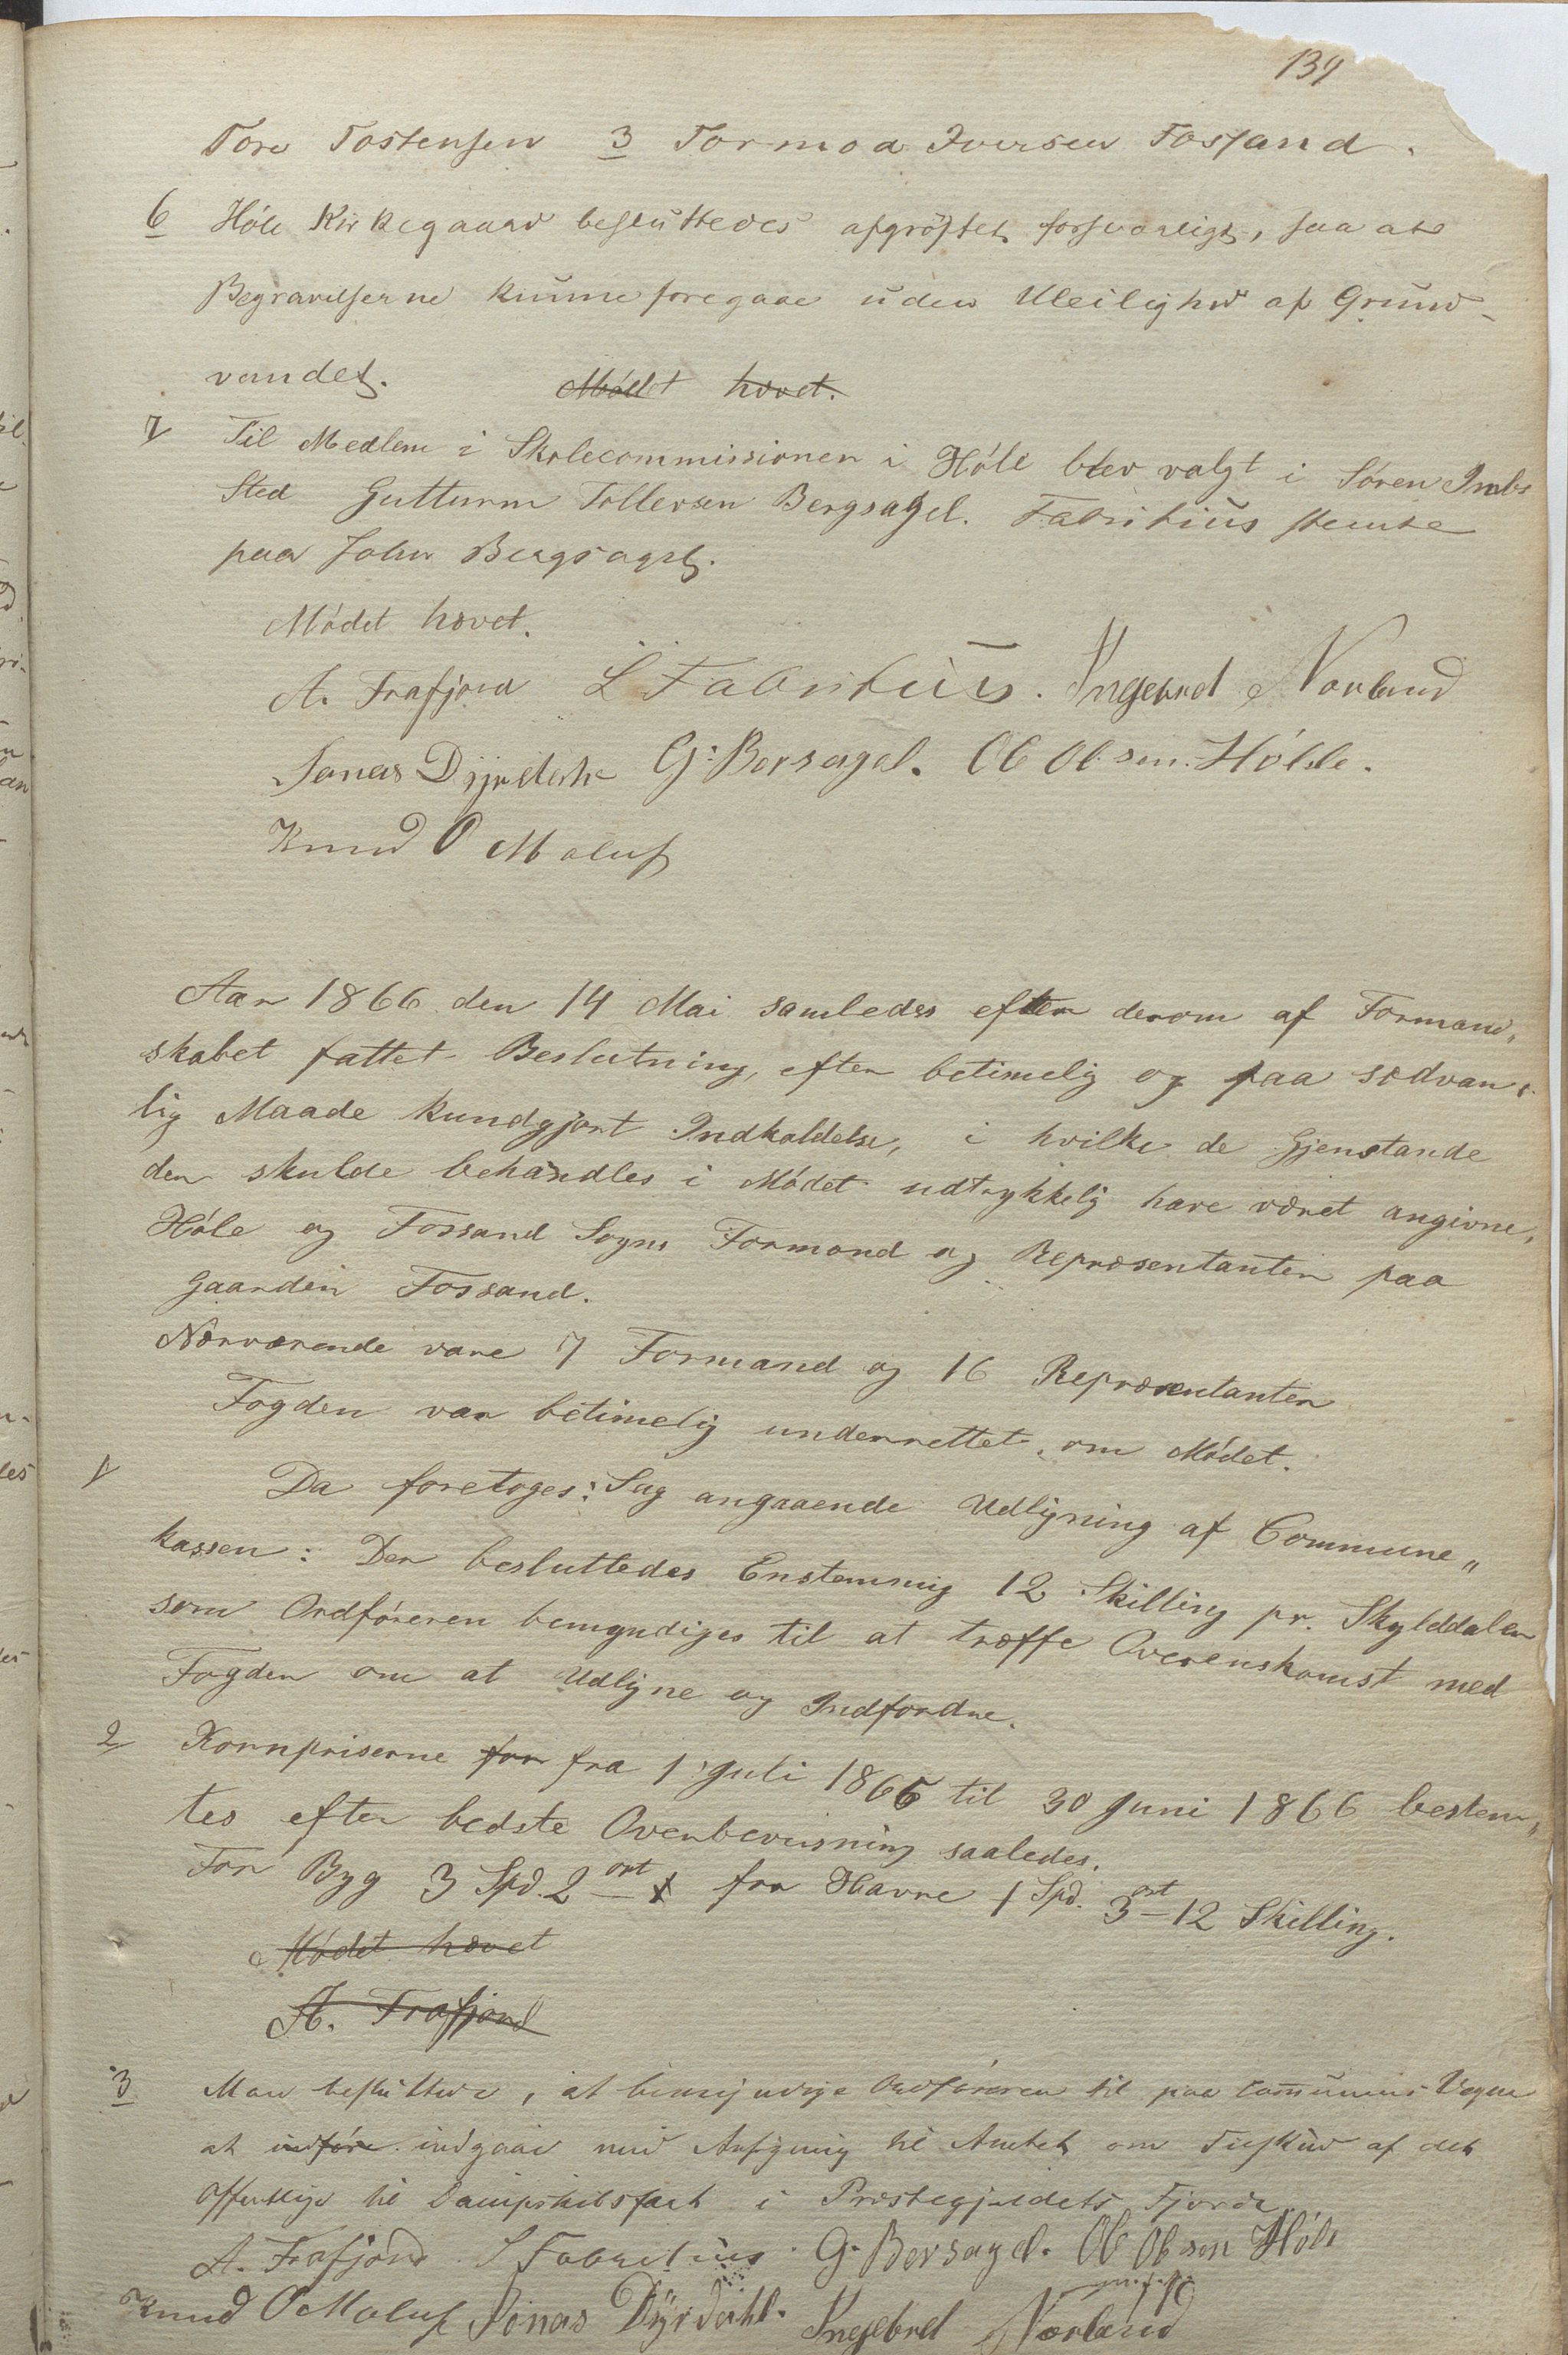 139
Tore Tostensen 3 Tormod Iversen Fossand.
6 Höle Kirkegaard besluttedes afgröftet forsvarligt, saa at
Begravelserne kunne foregaae uden Uleilighed af Grund-
vandet. Mödet hævet.
7 Til Medlem i Skolecommissionen i Höle blev valgt i Sören
Sted Gutturm Tollevsen Bergsagel. Fabritius stemte
paa John Bergsagel.
Mödet hævet.
A. Frafjord L Fabritius. Ingebret Norland
Jonas Dyrdahl G: Bersagel. Ol Olsen Hölle.
Knud O Maluf
Aar 1866 den 14 Mai samledes efter derom af Formand„
skabet fattet Beslutning, efter betimelig og paa sædvan„
lig Maade kundgjort Indkaldelse, i hvilke de Gjenstande
der skulde behandles i Mödet udtrykkelig have været angivne,
Höle og Fossand Sogns Formænd og Repræsentanter paa
Gaarden Fossand.
Nærværende vare 7 Formænd og 16 Repræsentanter
Fogden var betimelig underrettet om Mödet.
1 Da foretoges: Sag angaaende Udligning af Commune„
kassen: Der besluttedes Enstemmig 12 Skilling pr. Skylddaler
som Ordföreren bemyndiges til at træffe Overenskomst med
Fogden om at Udligne og Indfordre.
2 Kornpriserne for fra 1 Juli 1865 til 30 Juni 1866 bestem„
tes efter bedste Overbeviisning saaledes.
For Byg 3 Spd. 2 ort – for Havre 1 Spd. 3 ort – 12 Skilling.
Mödet hævet
A. Frafjord
3 Man besluttede, at bemyndige Ordföreren til paa Communens Vegne
at indföre indgaae med Ansögning til Amtet om Tilskud af det
Offentlige til Dampskibsfart i Præstegjeldets Fjorde
A. Frafjord. L Fabritius. G. Bersagel. Ol Olsen Höle
Knud O Maluf Jonas Dÿrdahl. Ingebret Norland